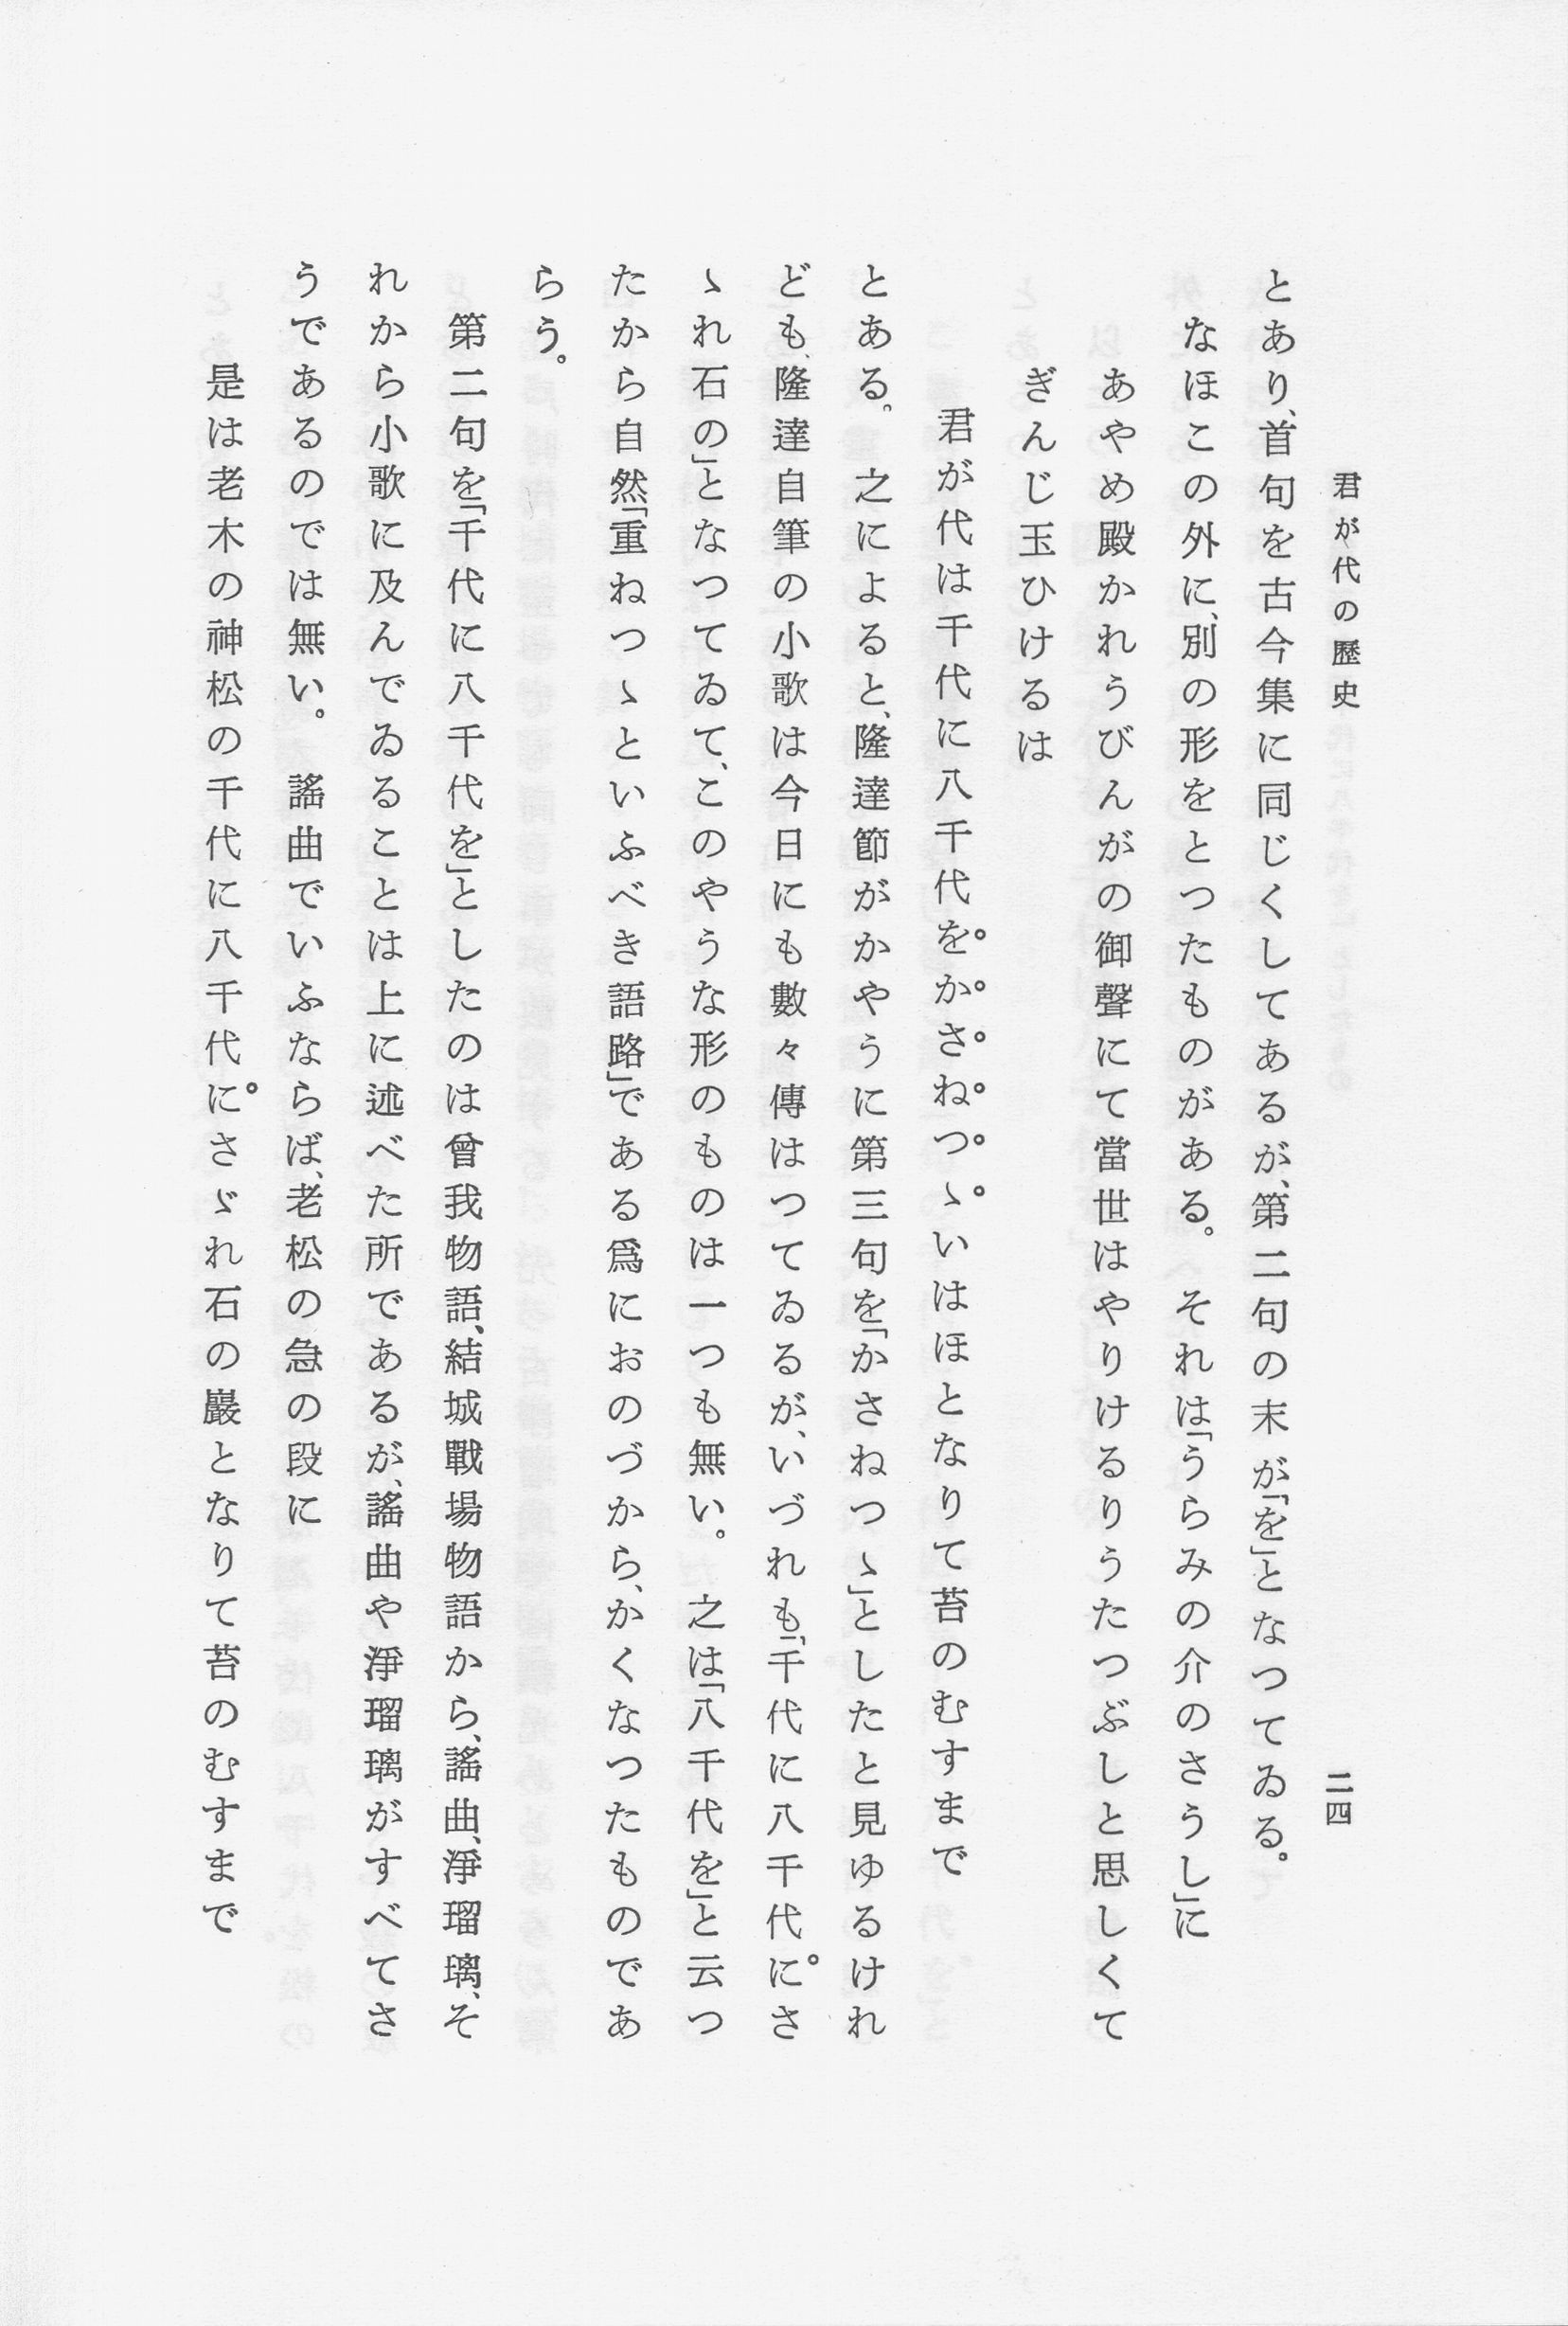 君が代の歷史
二四
とあり、首句を古今集に同じくしてあるが、第二句の末が「を」となつてゐる。
なほこの外に、別の形をとつたものがある。それは「うらみの介のさうし」に
あやめ殿かれうびんがの御聲にて當世はやりけるりうたつぶしと思しくて
ぎんじ玉ひけるは
君が代は千代に八千代をかさねつゝいはほとなりて苔のむすまで
とある。之によると、隆達節がかやうに第三句を「かさねつゝ」としたと見ゆるけれ
ども、隆達自筆の小歌は今日にも數々傳はつてゐるが、いづれも、「千代に八千代にさ
ゝれ石の」となつてゐて、このやうな形のものは一つも無い。之は「八千代を」と云つ
たから自然「重ねつゝといふべき語路」である爲におのづから、かくなつたものであ
らう。
第二句を「千代に八千代を」としたのは曾我物語、結城戰場物語から、謠曲、淨瑠璃、そ
れから小歌に及んでゐることは上に述べた所であるが、謠曲や淨瑠璃がすべてさ
うであるのでは無い。謠曲でいふならば、老松の急の段に
是は老木の神松の千代に八千代にさゞれ石の巖となりて苔のむすまで